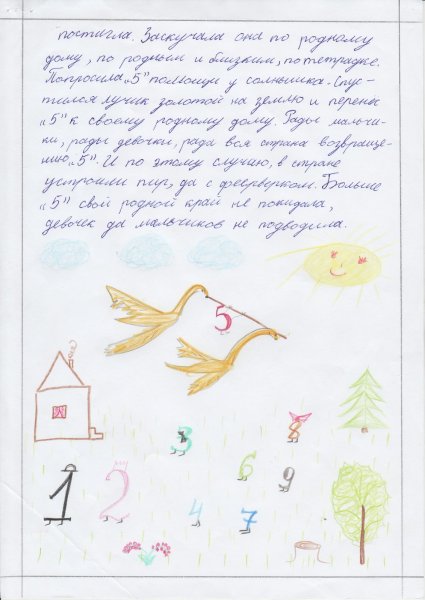 постигла. Заскучала она по родному
дому, по родным и близким, по тетрадке.
Попросила „5” помощи у солнышка. Спус-
тился лучик золотой на землю и перенёс
„5” к своему родному дому. Рады мальчи-
ки, рады девочки, рада вся страна возвраще-
нию „5”. И по этому случаю, в стране
устроили пир, да с фейерверком. Больше
„5” свой родной край не покидала,
девочек да мальчиков не подводила.
5
3
8
6
9
1
2
4
7